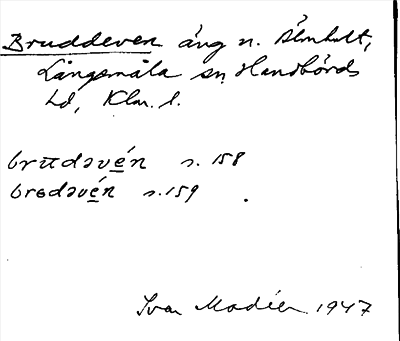 Bruddeven äng n. Älmhult,
Långemåla sn Handbörds
hd, Klm. l.
brudəvén s. 158
brɵdəvén s. 159 .
Ivar Modéer 1947